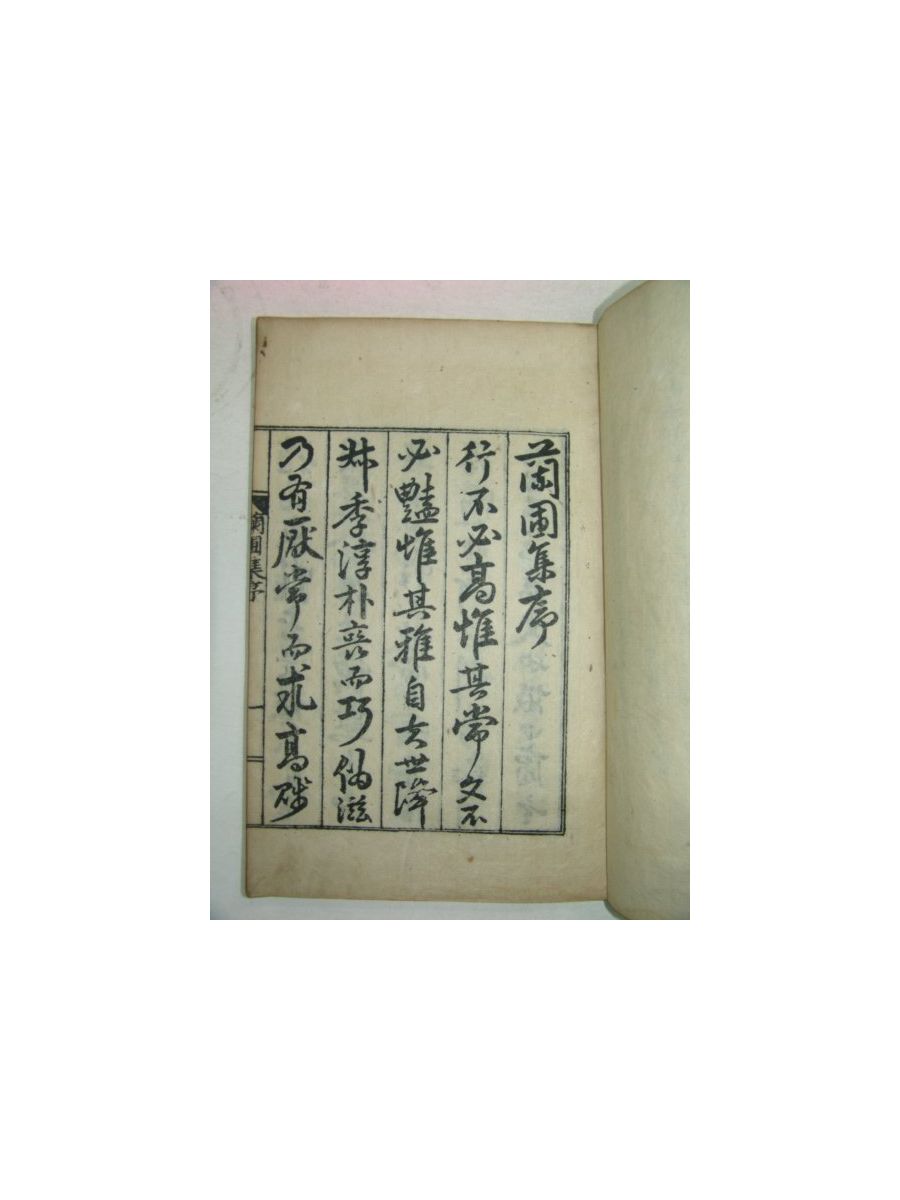 蘭圃集序
行不必高惟其常文不
必豔惟其雅自夫世降
叔季淳朴喪而巧偽滋
乃有厭常而求高
蘭圃集序
一